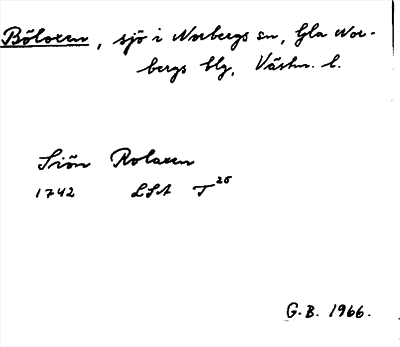 Böloren, sjö i Norbergs sn, Gla Nor-
bergs blg, Västm. l.
Siön Rolaren
1742 LSA T 26
G.B. 1966.